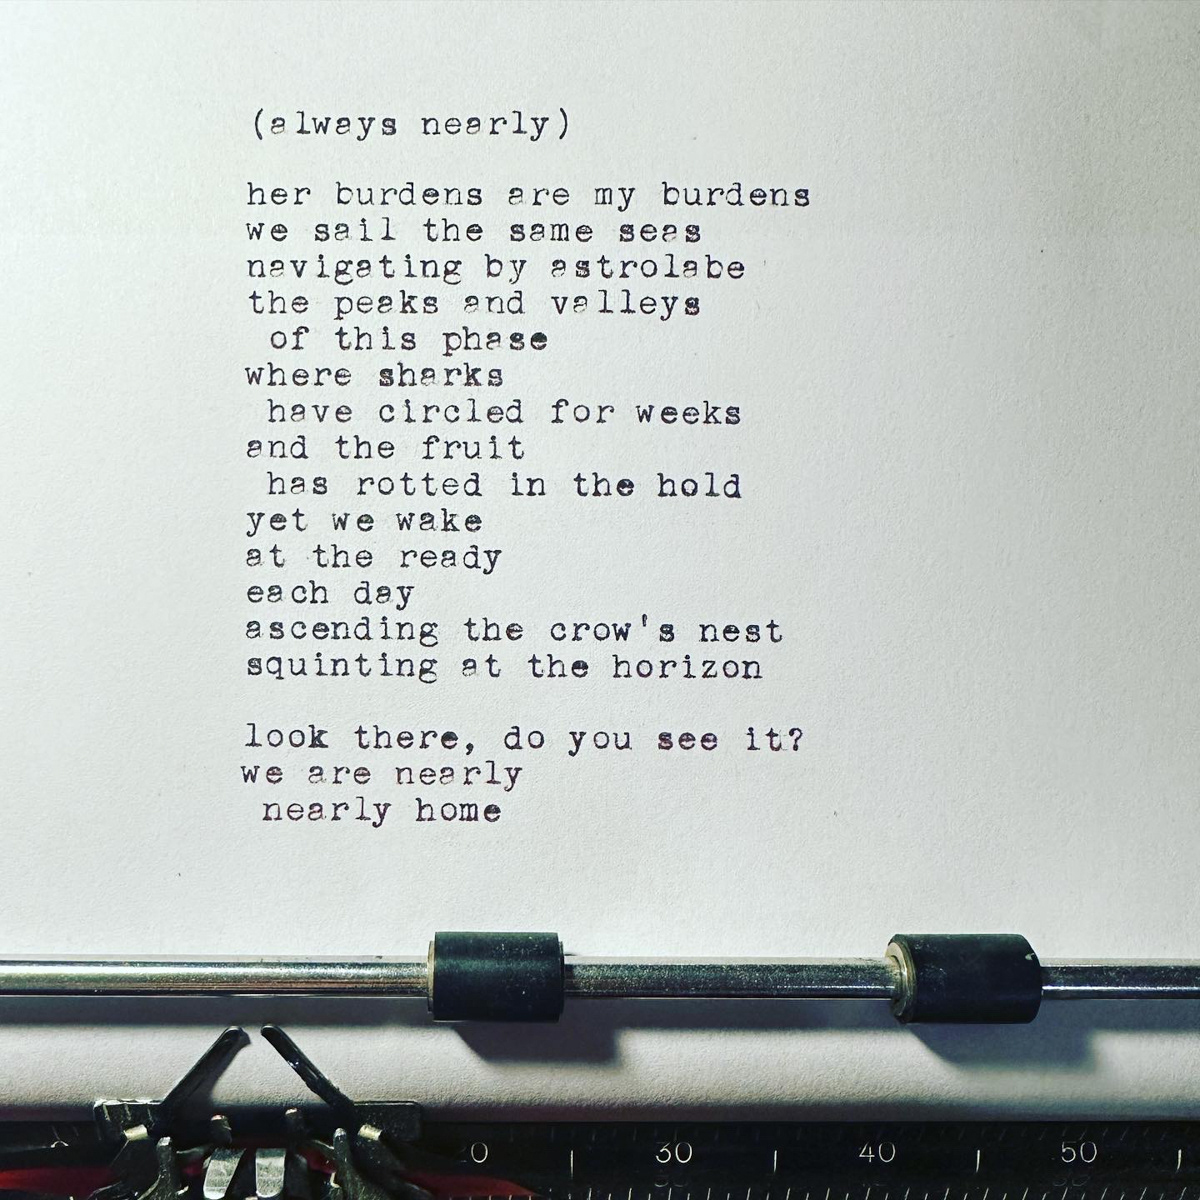 (always nearly)
her burdens are my burdens
we sail the same seas
navigating by astrolabe
the peaks and valleys
of this phase
where sharks
have circled for weeks
and the fruit
has rotted in the hold
yet we wake
at the ready
each day
ascending the crow's nest
squinting at the horizon
look there, do you see it?
we are nearly
nearly home
30 40 50